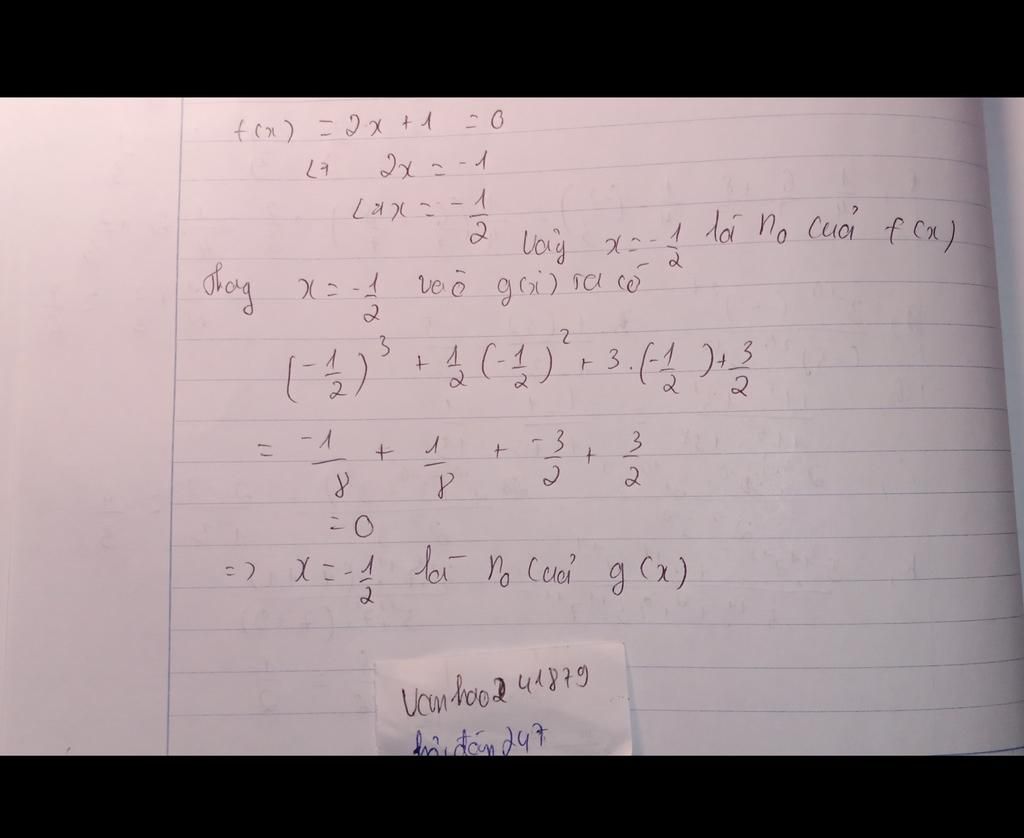 f(x) = 2x + 1 = 0
<=> 2x = -1
<=> x = -1/2
Vậy x = -1/2 là n₀ của f(x)
Thay x = -1/2 vào g(x) ta có
(-1/2)³ + 1/2 (-1/2)² + 3.(-1/2) + 3/2
= -1/8 + 1/8 + -3/2 + 3/2
= 0
=> x = -1/2 là n₀ của g(x)
Vanhao241879
hỏi đán247